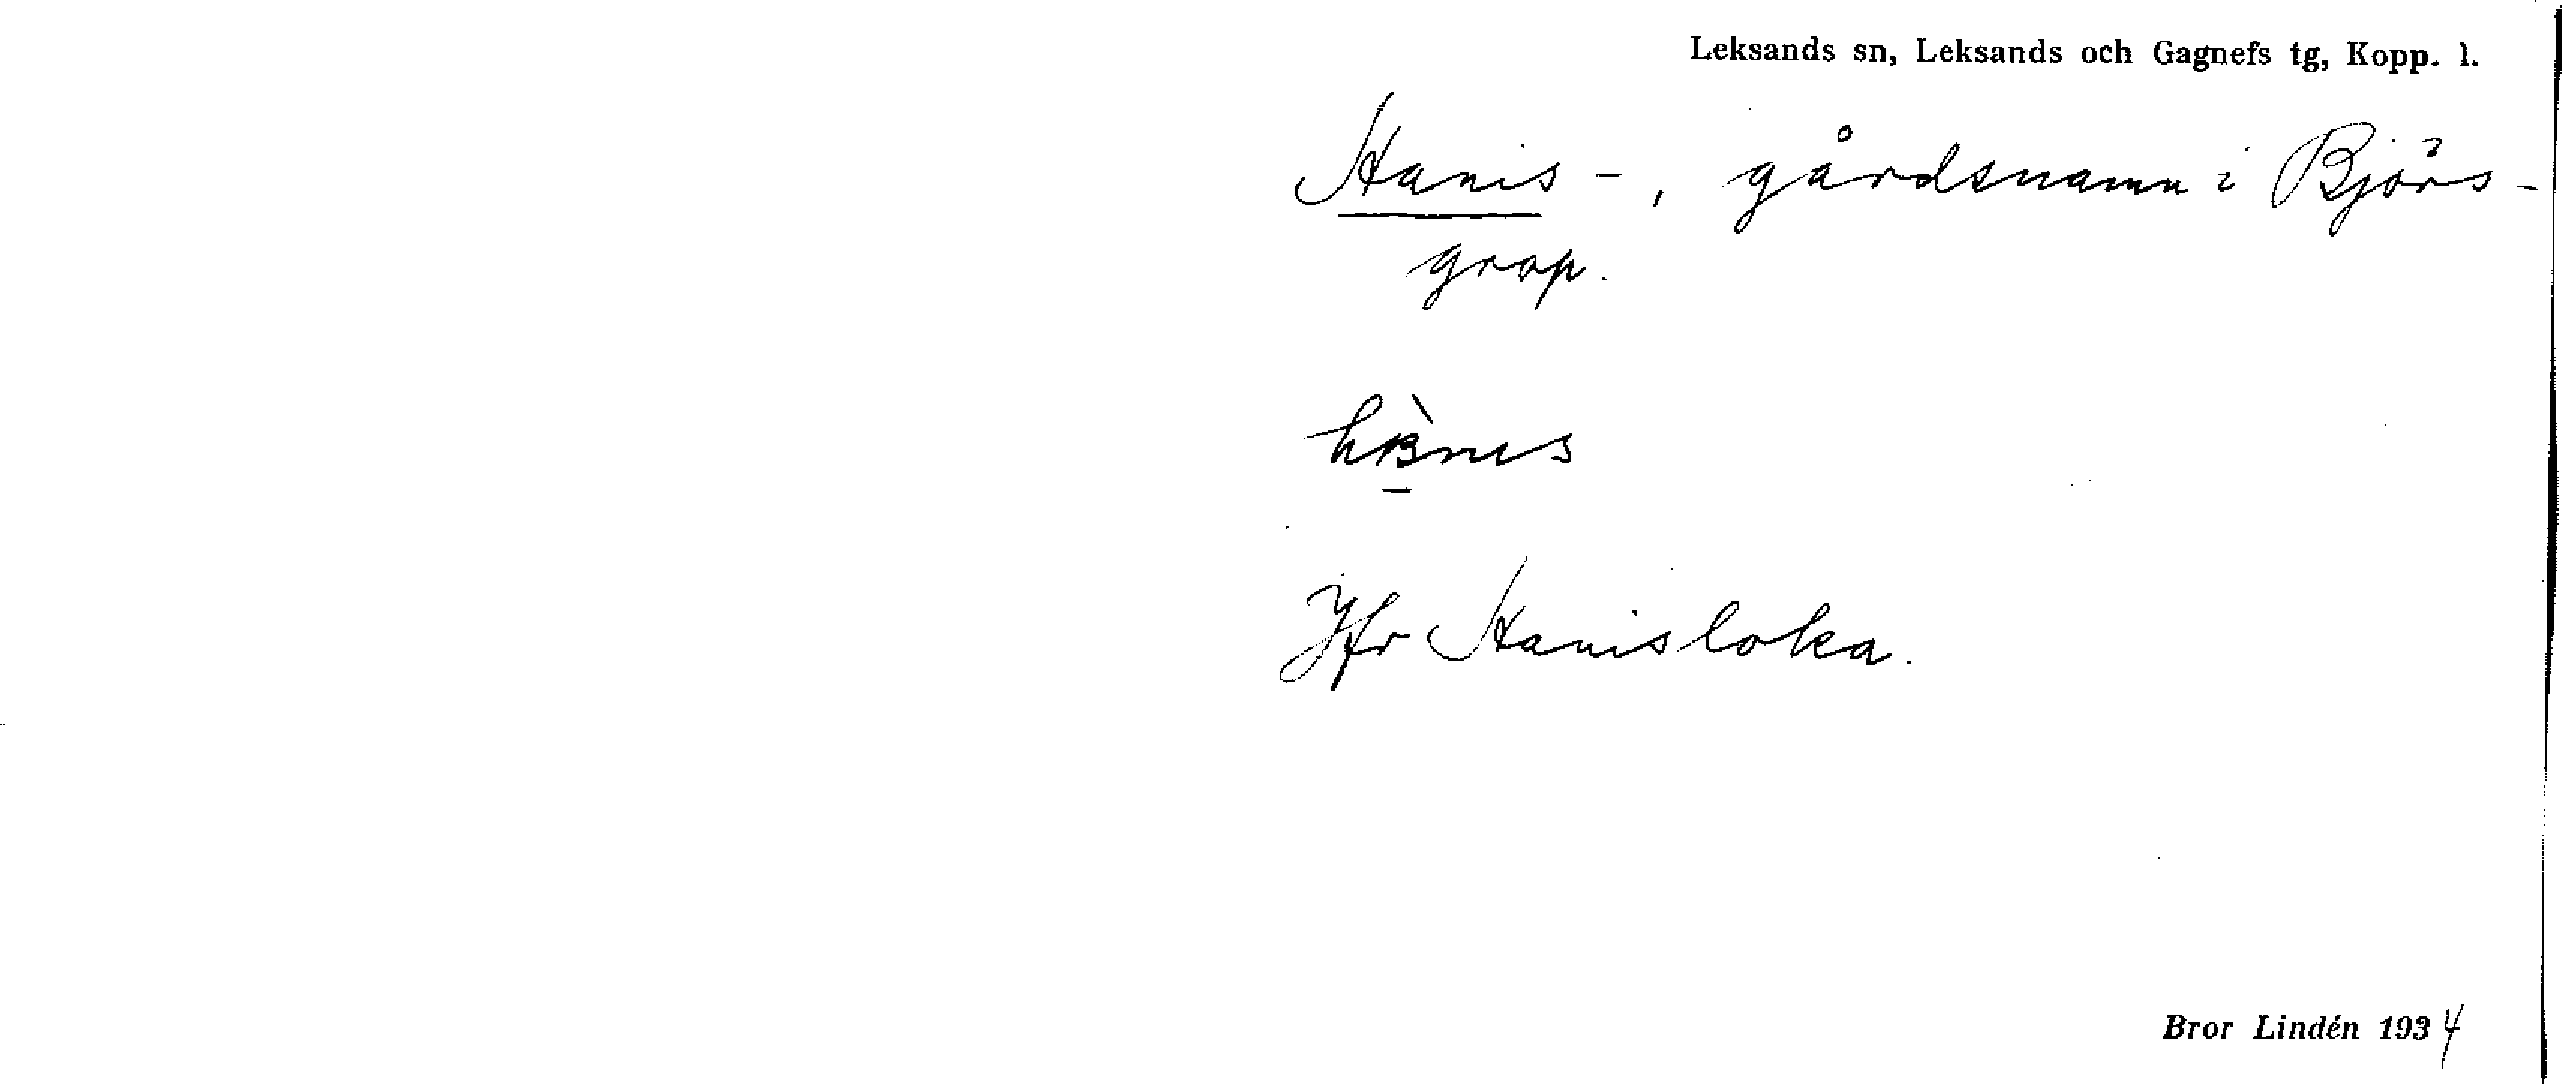 Leksands sn, Leksands och Gagnefs tg, Kopp. l.
Hanis-, gårdsnamn i Björs-
grop.
Jfr Hanisloka.
Bror Lindén 1934